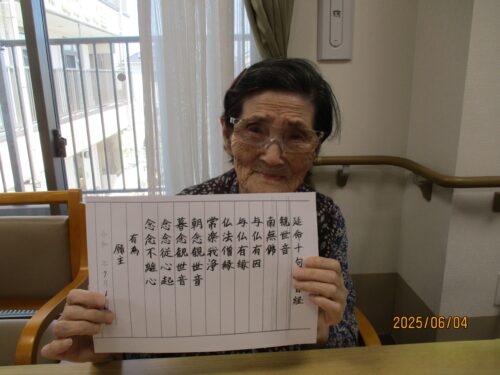 延命十句
経
観世音
南無佛
与仏有因
与仏有縁
仏法僧縁
常楽我浄
朝念観世音
暮念観世音
念念従心起
念念不離心
有為
願主
2025/06/04